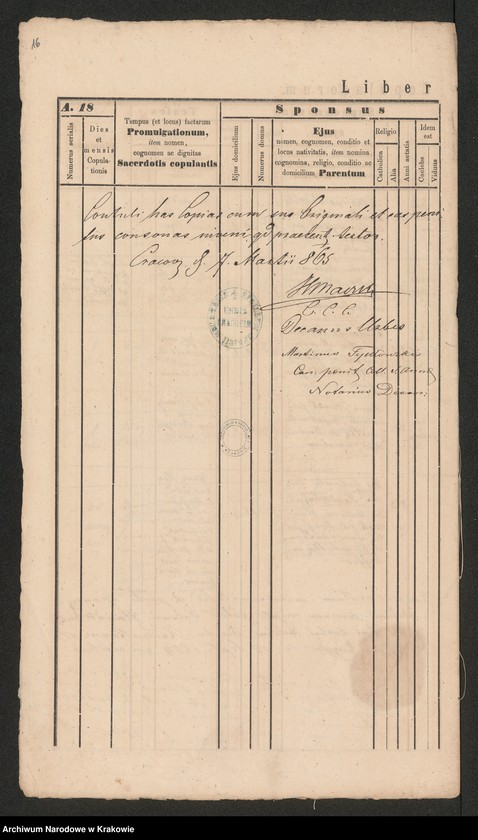 16
Liber
A. 18
Sponsus
Numerus serialis
Dies
et
mensis
Copula-
tionis
Tempus (et locus) factarum
Promulgationum,
item nomen,
cognomen ac dignitas
Sacerdotis copulantis
Ejus domicilium
Numerus domus
Ejus
nomen, cognomen, conditio et
locus nativitatis, item nomina
cognomina, religio, conditio ac
domicilium Parentum
Religio
Catholica
Alia
Anni aetatis
Idem
est
Coelebs
Viduus
Contuli has Copias cum suo Originali et eas peni-
tus consonas inveni qd praesent. testor.
Cracov. d. 7. Martii 865
C. C. C.
Decanus Urbis
Martinus
Can. poenit. Coll. S. Annae
Notarius Decan:
Archiwum Narodowe w Krakowie